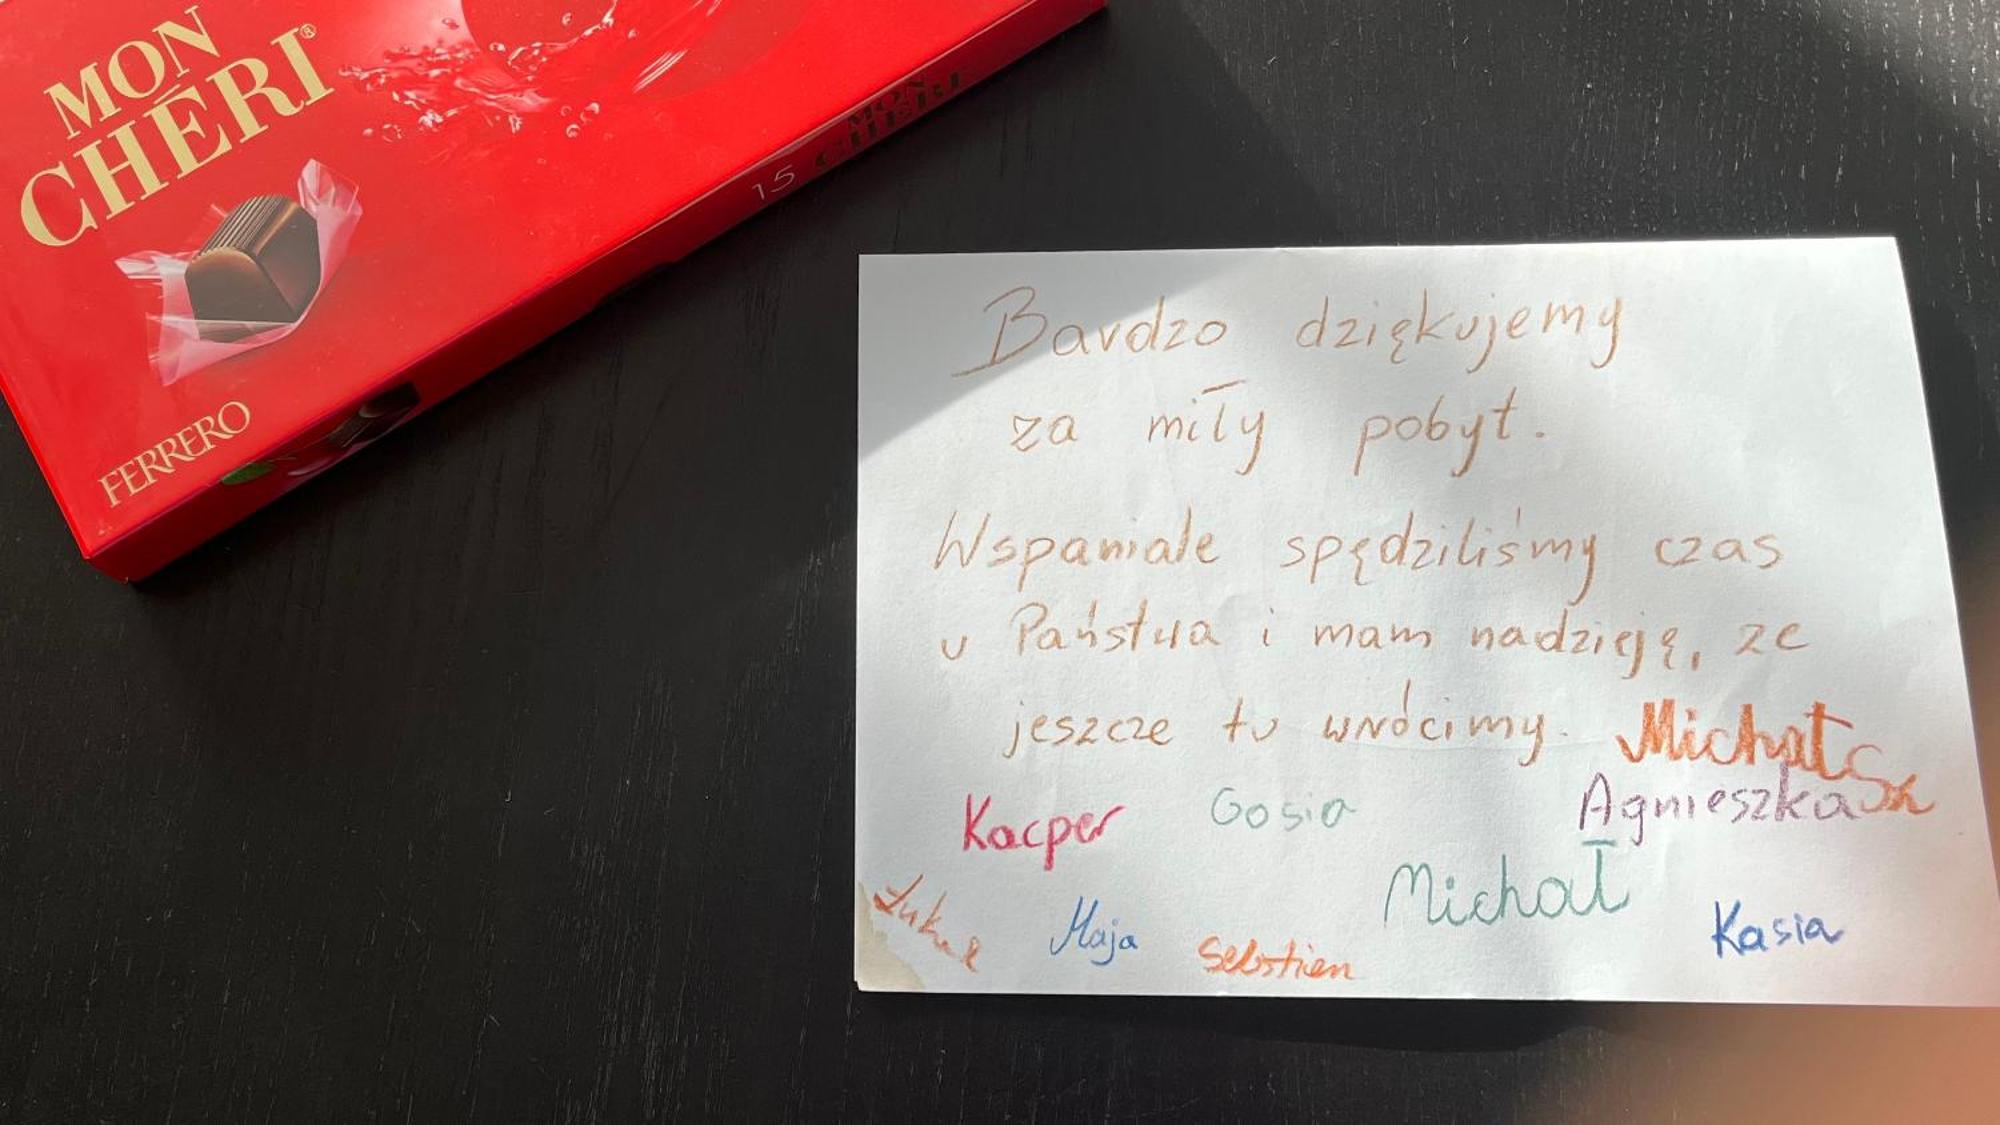 MON
CHÉRI®
FERRERO
15 MON
CHÉRI
Bardzo dziękujemy
za miły pobyt.
Wspaniale spędziliśmy czas
u Państwa i mam nadzieję, ze
jeszcze tu wrócimy.
Michał Sz
Kacper Gosia Agnieszka
Michał
Maja Kasia